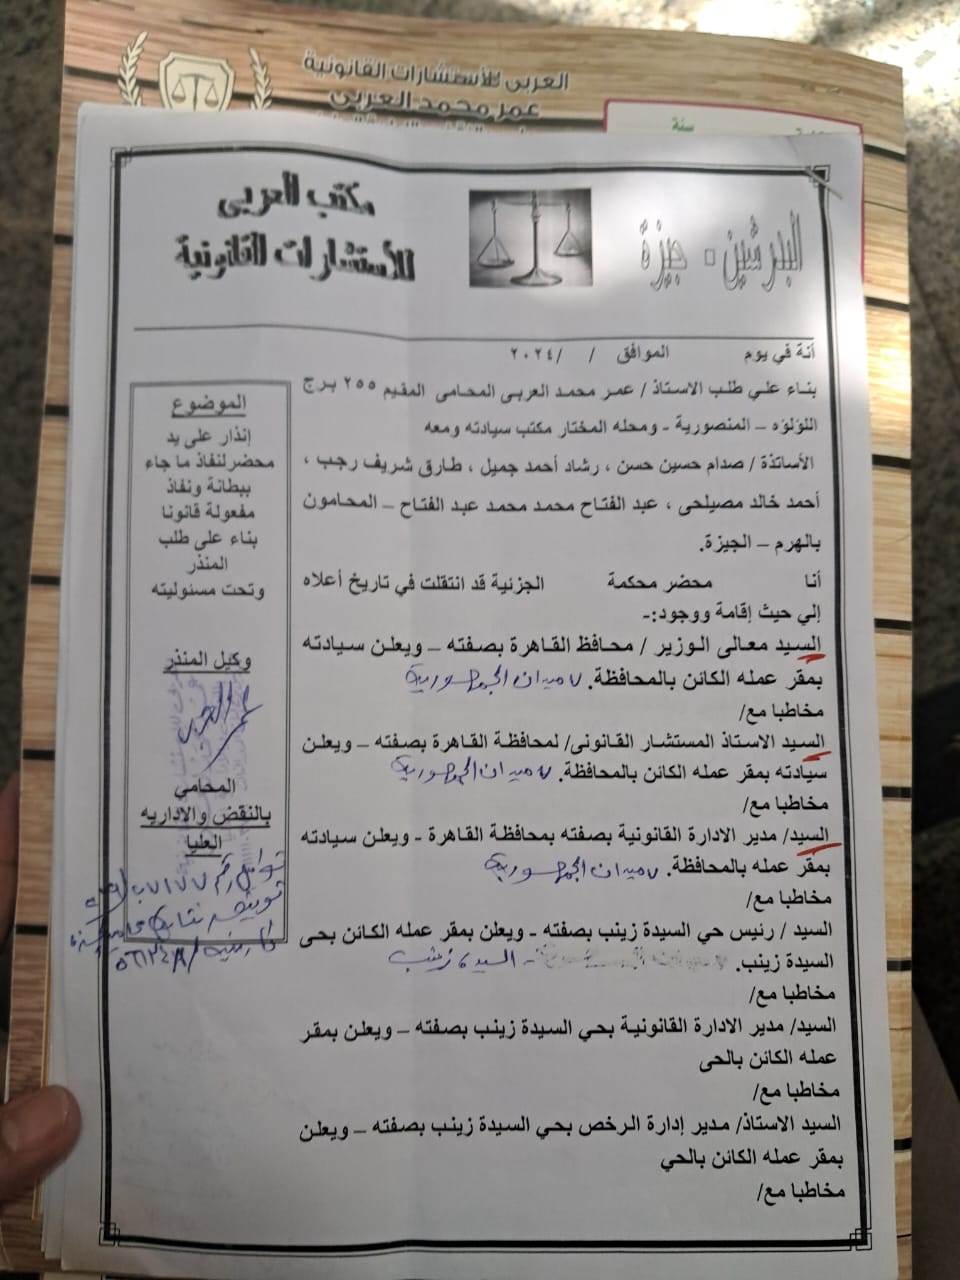 العربى للأستشارات القانونية
عمر محمد العربى
سنة
مكتب العربى
للأستشارات القانونية
البدرشين - جيزة
أنة في يوم الموافق / / ٢٠٢٤
بناء علي طلب الاستاذ / عمر محمد العربى المحامى المقيم ٢٥٥ برج
اللؤلؤه – المنصورية - ومحله المختار مكتب سيادته ومعه
الأساتذة / صدام حسين حسن ، رشاد أحمد جميل ، طارق شريف رجب ،
أحمد خالد مصيلحى ، عبد الفتاح محمد محمد عبد الفتاح – المحامون
بالهرم – الجيزة.
أنا محضر محكمة الجزئية قد انتقلت في تاريخ أعلاه
إلي حيث إقامة ووجود:-
السيد معالى الوزير / محافظ القاهرة بصفته – ويعلن سيادته
بمقر عمله الكائن بالمحافظة. ٧ ميدان الجمهورية
مخاطبا مع/
السيد الاستاذ المستشار القانونى/ لمحافظة القاهرة بصفته – ويعلن
سيادته بمقر عمله الكائن بالمحافظة. ٧ ميدان الجمهورية
مخاطبا مع/
السيد/ مدير الادارة القانونية بصفته بمحافظة القاهرة - ويعلن سيادته
بمقر عمله بالمحافظة. ٧ ميدان الجمهورية
مخاطبا مع/
السيد / رئيس حي السيدة زينب بصفته - ويعلن بمقر عمله الكائن بحى
السيدة زينب. - السيدة زينب
مخاطبا مع/
السيد/ مدير الادارة القانونية بحي السيدة زينب بصفته – ويعلن بمقر
عمله الكائن بالحى
مخاطبا مع/
السيد الاستاذ/ مدير إدارة الرخص بحي السيدة زينب بصفته – ويعلن
بمقر عمله الكائن بالحي
مخاطبا مع/
الموضوع
إنذار على يد
محضرلنفاذ ما جاء
ببطانة ونفاذ
مفعولة قانونا
بناء على طلب
المنذر
وتحت مسئوليته
وكيل المنذر
المحامي
بالنقض والاداريه
العليا